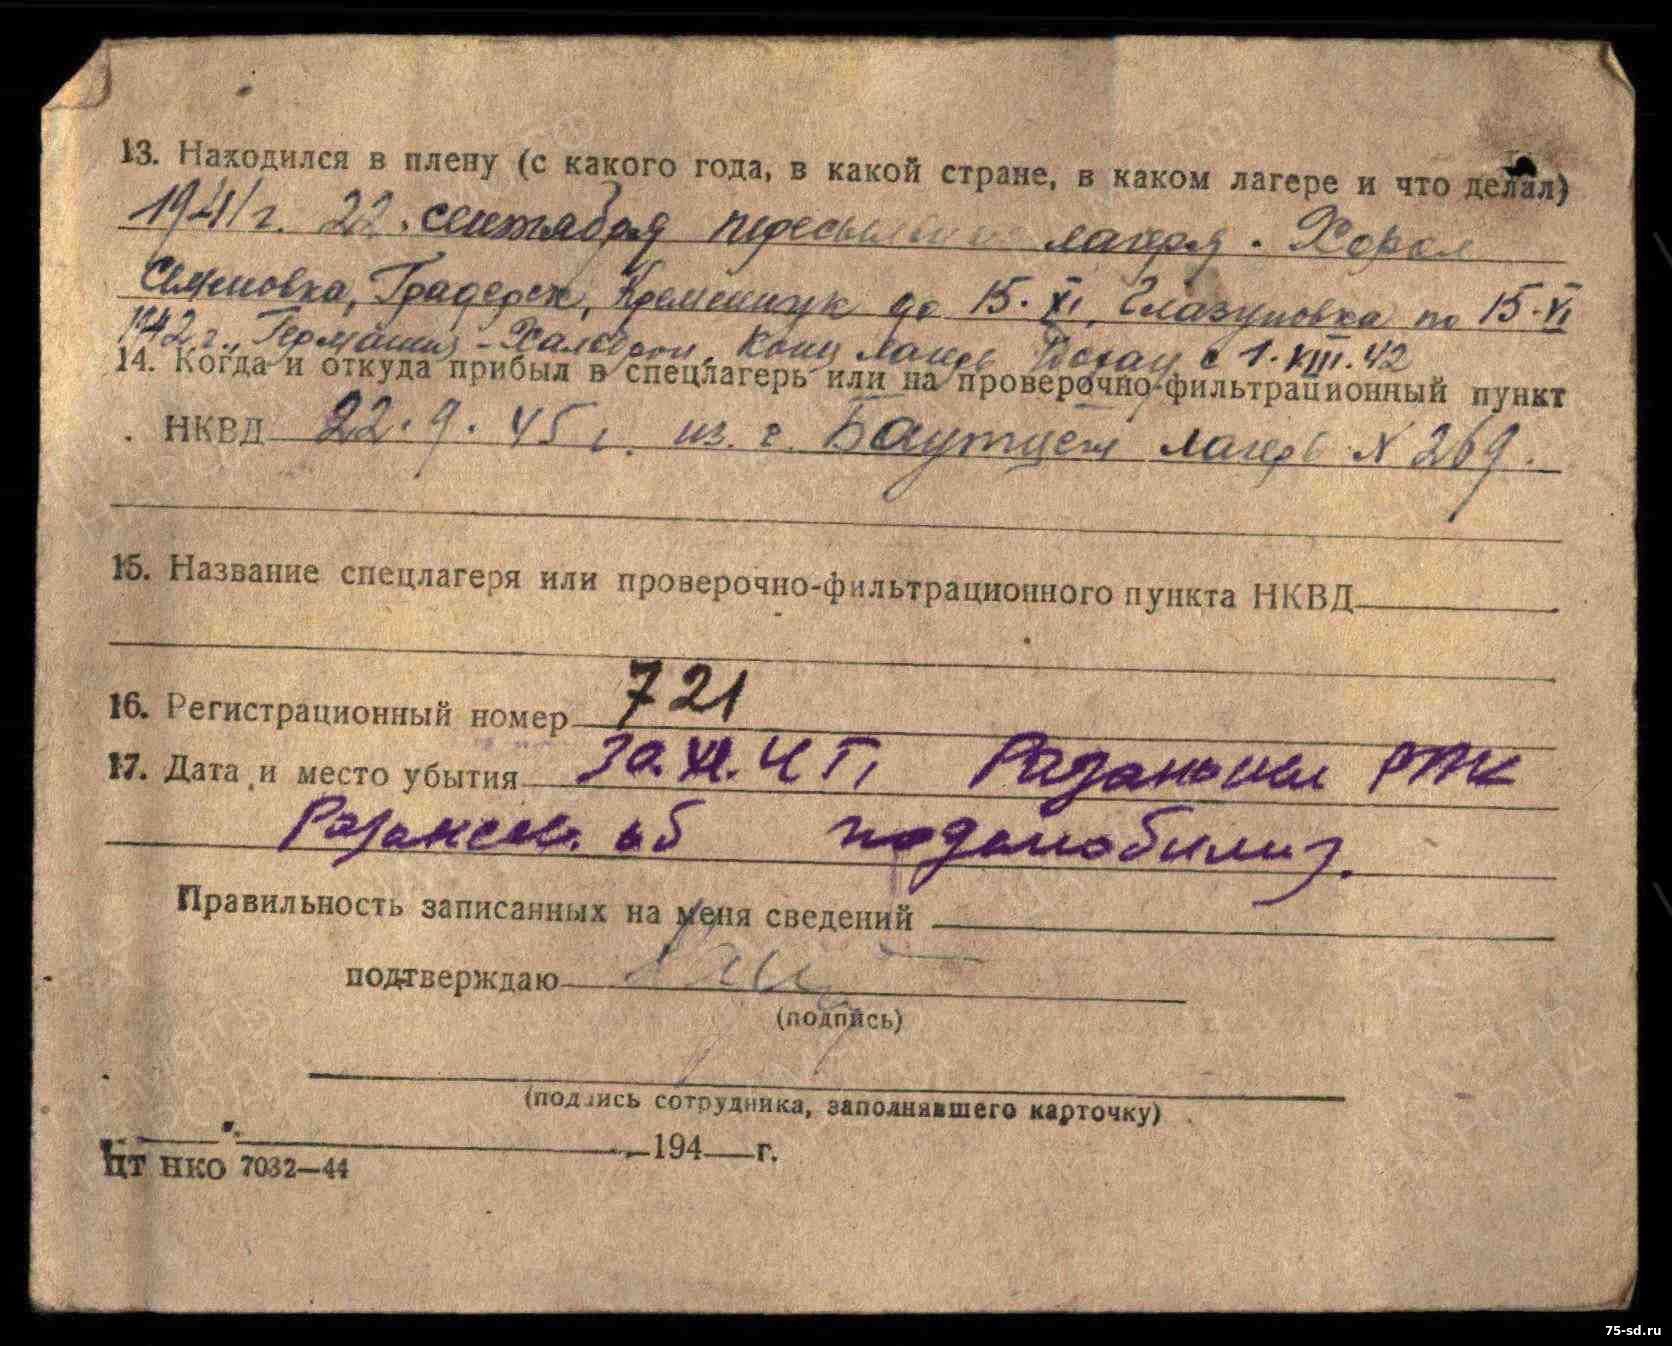 13. Находился в плену (с какого года, в какой стране, в каком лагере и что делал)
1941 г. 22. сентября пересыльные лагеря. Хорол
Семеновка, Градержск, Кременчук до 15.XI, Глазуновка по 15.VI
1942 г., Германия - Конц лагерь с 1.VIII.42
14. Когда и откуда прибыл в спецлагерь или на проверочно-фильтрационный пункт
НКВД 22.9.45 г. из г. Баутцен лагерь N 269.
15. Название спецлагеря или проверочно-фильтрационного пункта НКВД
16. Регистрационный номер 721
17. Дата и место убытия 30.XI. РВК
Рязанск. об подемобилиз.
Правильность записанных на меня сведений
подтверждаю
(подпись)
(подпись сотрудника, заполнявшего карточку)
194 г.
ЦТ НКО 7032—44
75-sd.ru